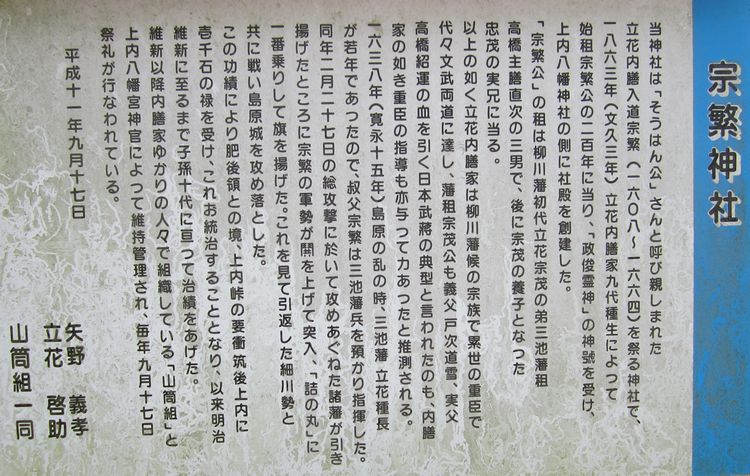 宗繁神社
当神社は「そうはん公」さんと呼び親しまれた
立花内膳入道宗繁(一六〇八~一六六四)を祭る神社で、
一八六三年(文久三年)立花内膳家九代種生によって
始祖宗繁公の二百年に当り、「政俊霊神」の神號を受け、
上内八幡神社の側に社殿を創建した。
「宗繁公」の祖は柳川藩初代立花宗茂の弟三池藩祖
高橋主膳直次の三男で、後に宗茂の養子となつた
忠茂の実兄に当る。
以上の如く立花内膳家は柳川藩候の宗族で累世の重臣で
代々文武両道に達し、藩祖宗茂公も義父戸次道雪、実父
高橋紹運の血を引く日本武蔣の典型と言われたのも、内膳
家の如き重臣の指導も亦与つて力あったと推測される。
一六三八年(寛永十五年)島原の乱の時、三池藩 立花種長
が若年であったので、叔父宗繁は三池藩兵を預かり指揮した。
同年二月二十七日の総攻撃に於いて攻めあぐねた諸藩が引き
揚げたところに宗繁の軍勢が鬨を上げて突入、「詰の丸」に
一番乗りして旗を揚げた。これを見て引返した細川勢と
共に戦い島原城を攻め落とした。
この功績により肥後領との境、上内峠の要衝 筑後上内に
壱千石の禄を受け、これお統治することとなり、以来明治
維新に至るまで子孫十代に亘って治績をあげた。
維新以降内膳家ゆかりの人々で組織している「山筒組」と
上内八幡宮神官によって維持管理され、毎年九月十七日
祭礼が行なわれている。
平成十一年九月十七日
矢野 義孝
立花 啓助
山筒組一同